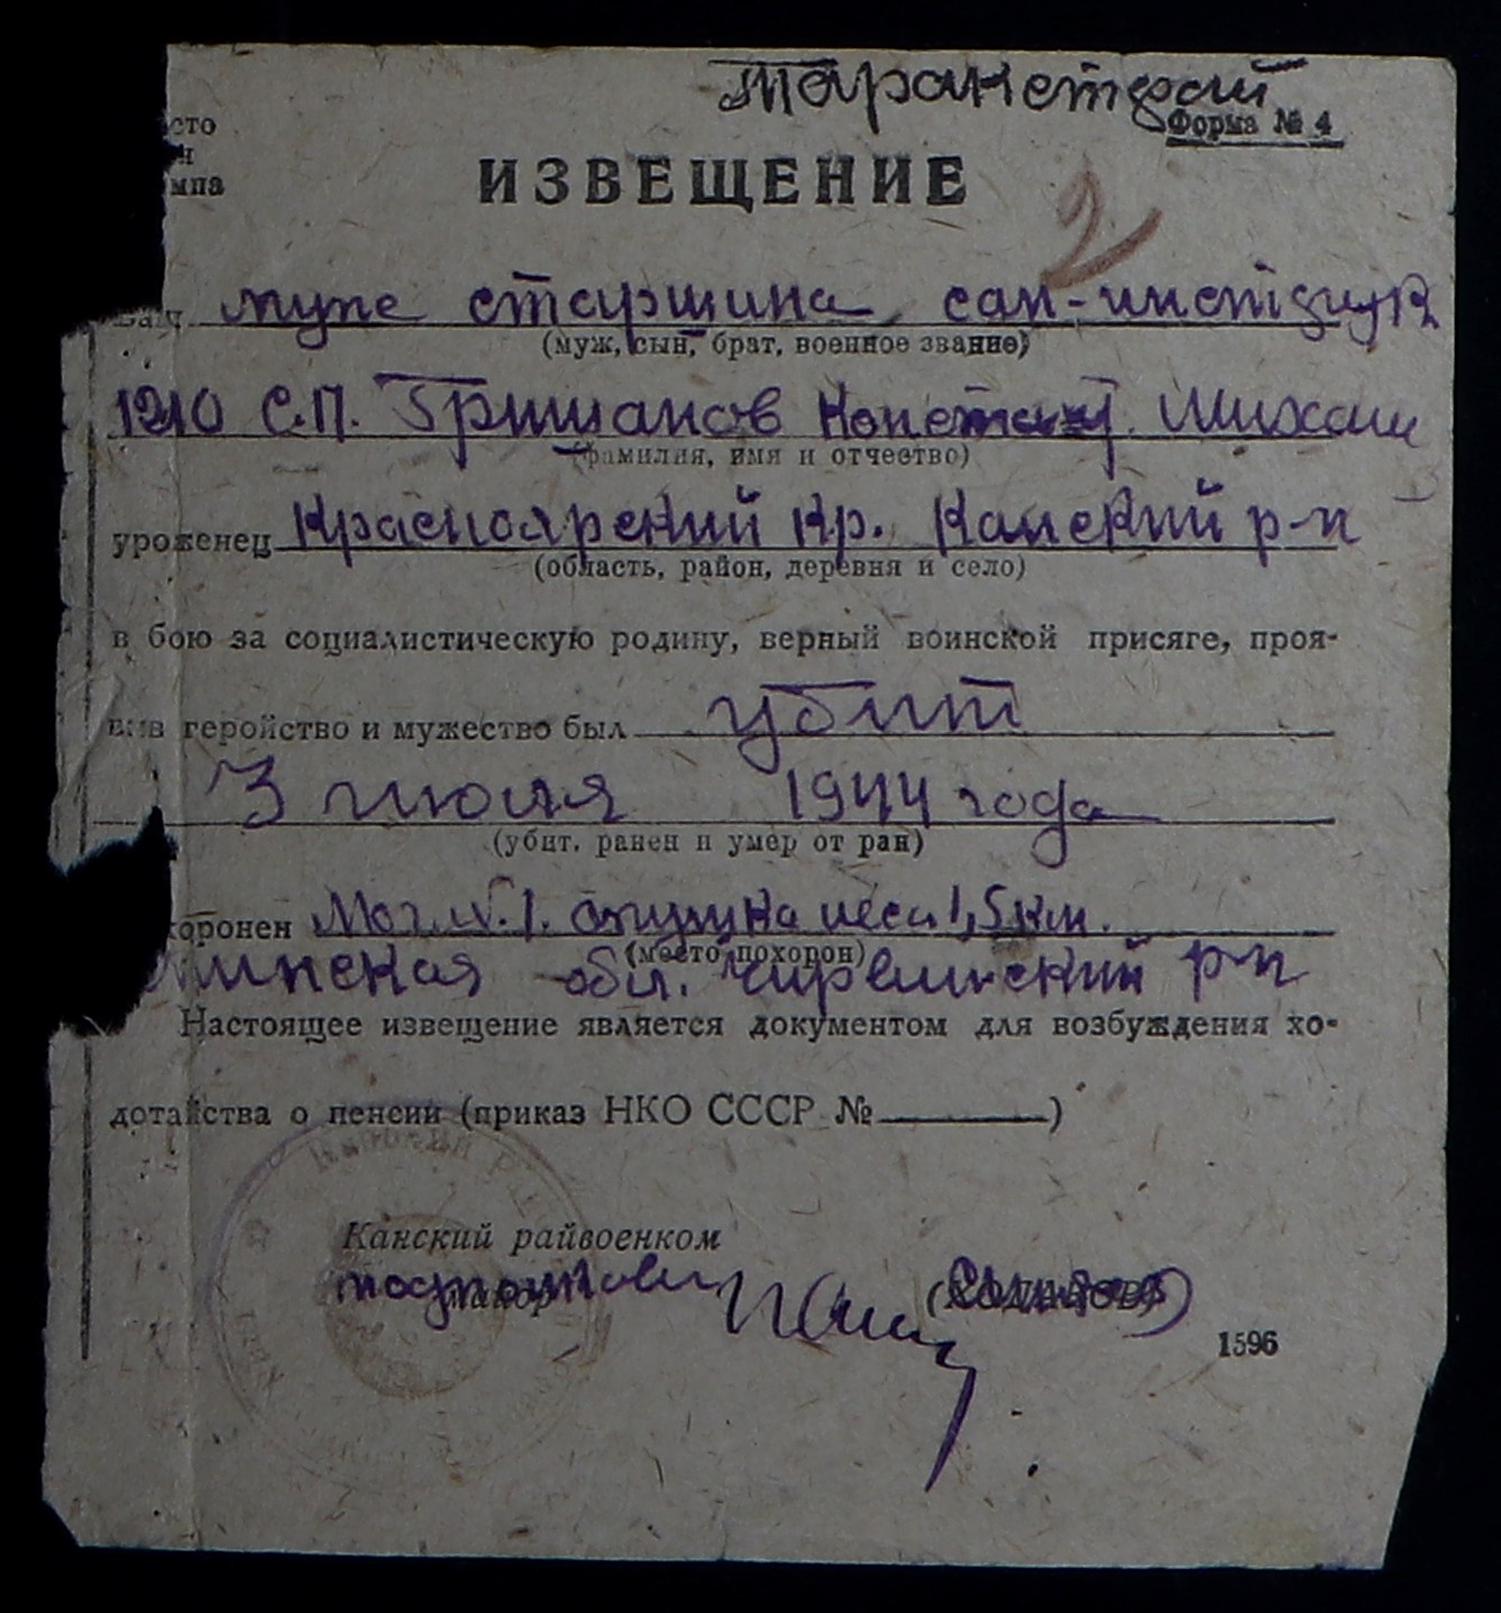 Форма № 4
сто
мпа
ИЗВЕЩЕНИЕ
2
муже старшина сан-инструк
(муж, сын, брат, военное звание)
1210 С.П. Гришанов Михаил
(фамилия, имя и отчество)
уроженец Красноярский кр. Канский р-н
(область, район, деревня и село)
в бою за социалистическую родину, верный воинской присяге, проя-
вив геройство и мужество был убит
3 июля 1944 года
(убит, ранен и умер от ран)
оронен Мог. №.1. опушка леса 1,5 км.
(место похорон)
Минская обл. р-н
Настоящее извещение является документом для возбуждения хо-
датайства о пенсии (приказ НКО СССР № )
Канский райвоенком
майор
1596